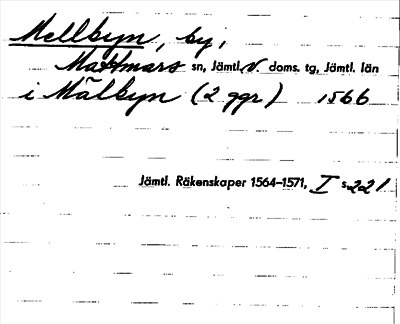 Mellbyn, by,
Mattmars sn, Jämtl. V. doms. tg, Jämtl. län
i Mälbyn (2 ggr) 1566
Jämtl. Räkenskaper 1564–1571, I s. 221